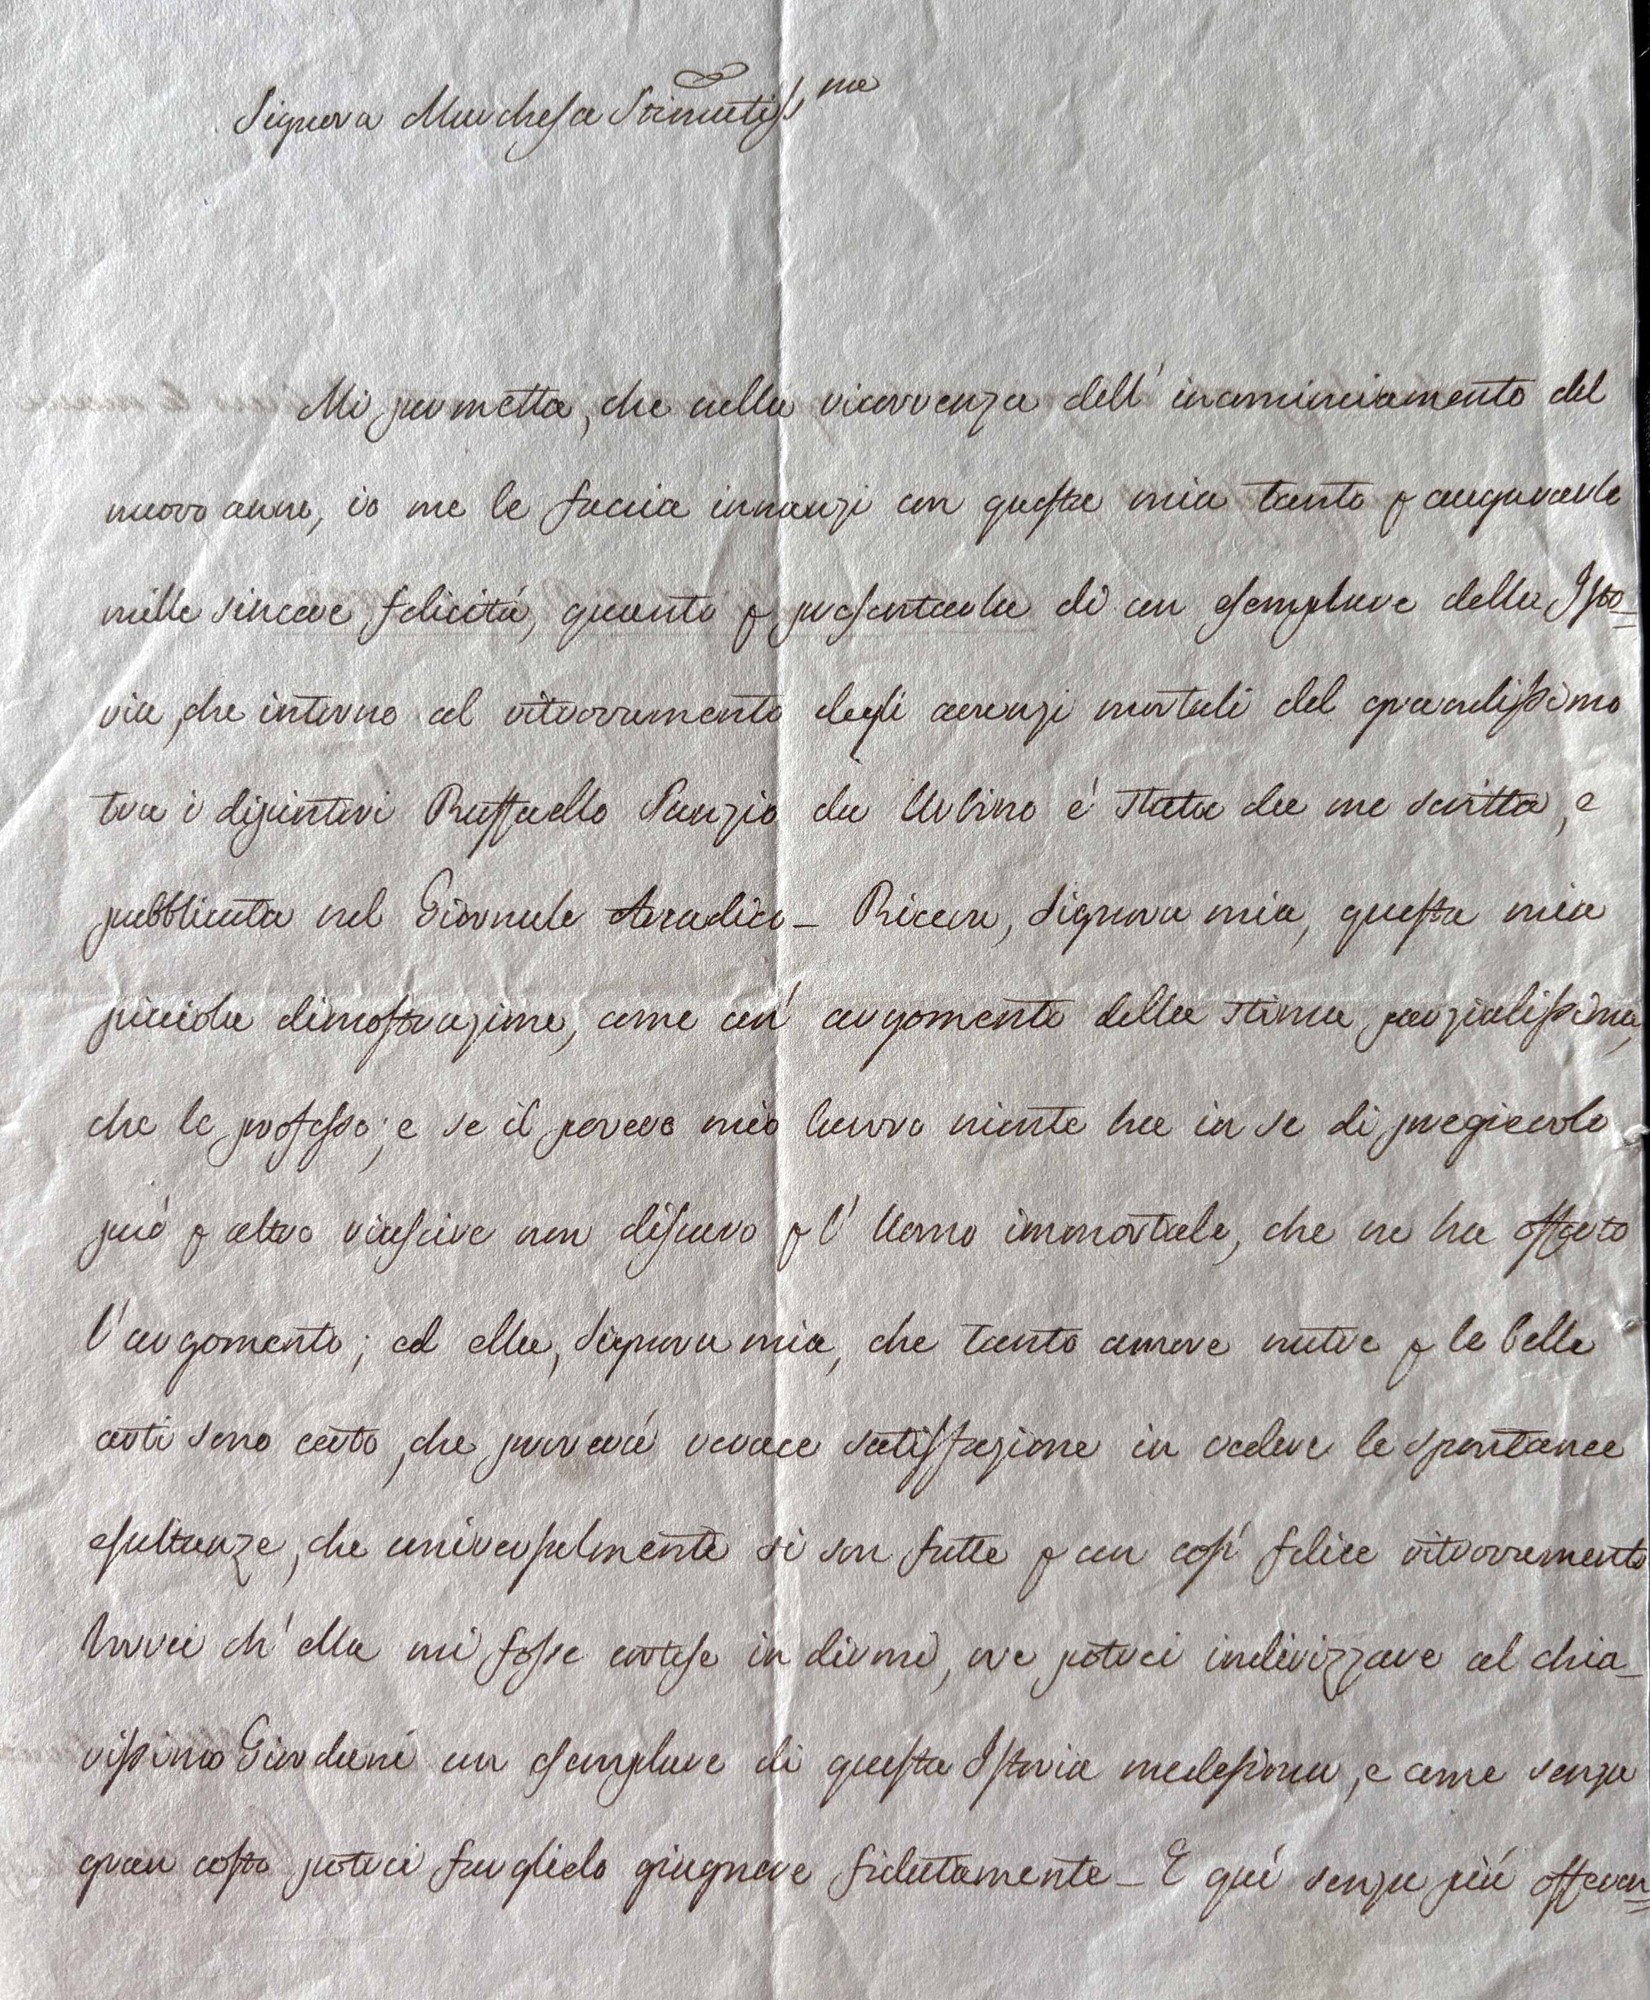 Signora Marchesa Stimatiss.ma
Mi permetta, che nella ricorrenza dell' incominciamento del
nuovo anno, io me le faccia innanzi con questa mia tanto p augurarle
mille sincere felicità, quanto p presentarla di un esemplare della Isto=
ria, che intorno al ritrovamento degli avanzi mortali del grandissimo
tra i dipintori Raffaello Sanzio da Urbino è stata da me scritta, e
pubblicata nel Giornale Arcadico_ Riceva, Signora mia, questa mia
picciola dimostrazione, come un' argomento della stima parzialissima,
che le professo; e se il povero mio lavoro niente ha in se di pregievole
può p altro riuscire non discaro p l' Uomo immortale, che ne ha offerto
l'argomento; ed ella, Signora mia, che tanto amore nutre p le belle
arti sono certo, che proverà verace satisfazione in vedere le spontanee
esultanze, che universalmente si son fatte p un così felice ritrovamento
Vorrei ch' ella mi fosse cortese in dirmi, ove potrei indirizzare al chia_
rissimo Giordani un esemplare di questa Istoria medesima, e come senza
gran costo potrei farglielo giugnere fidatamente_ E quì senza più offeren=